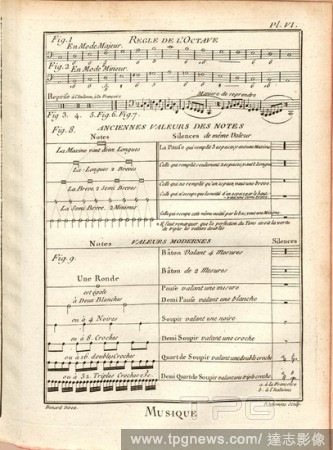 Pl. VI.
Fig. 1 REGLE DE L'OCTAVE
En Mode Majeur.
Fig. 2 En Mode Mineur.
Reprise à l'Italienne, à la Françoise
Maniere de reprendre
Fig 3. 4. 5. Fig. 6. Fig. 7.
Fig. 8. ANCIENNES VALEURS DES NOTES
Notes Silences de même Valeur
La Maxime vaut deux Longues
La Longue 2 Breves
La Breve 2 Semi Breves
La Semi Breve 2 Minimes
Notes VALEURS MODERNES Silences
Fig. 9.
Bâton Valant 4 Mesures
Bâton de 2 Mesures
Une Ronde
est égale
Pause valant une mesure
à Deux Blanches
Demi Pause valant une blanche
ou à 4 Noires
Soupir valant une noire
ou à 8 Croches
Demi Soupir valant une croche
ou à 16 doubles Croches
Quart de Soupir valant une double croche
ou à 32 Triples Croches &c
Demi Quart de Soupir valant une triple croche
a à la Françoise
b à l'Italienne
Benard Direx.
MUSIQUE
TPG
www.tpgnews.com / 達志影像